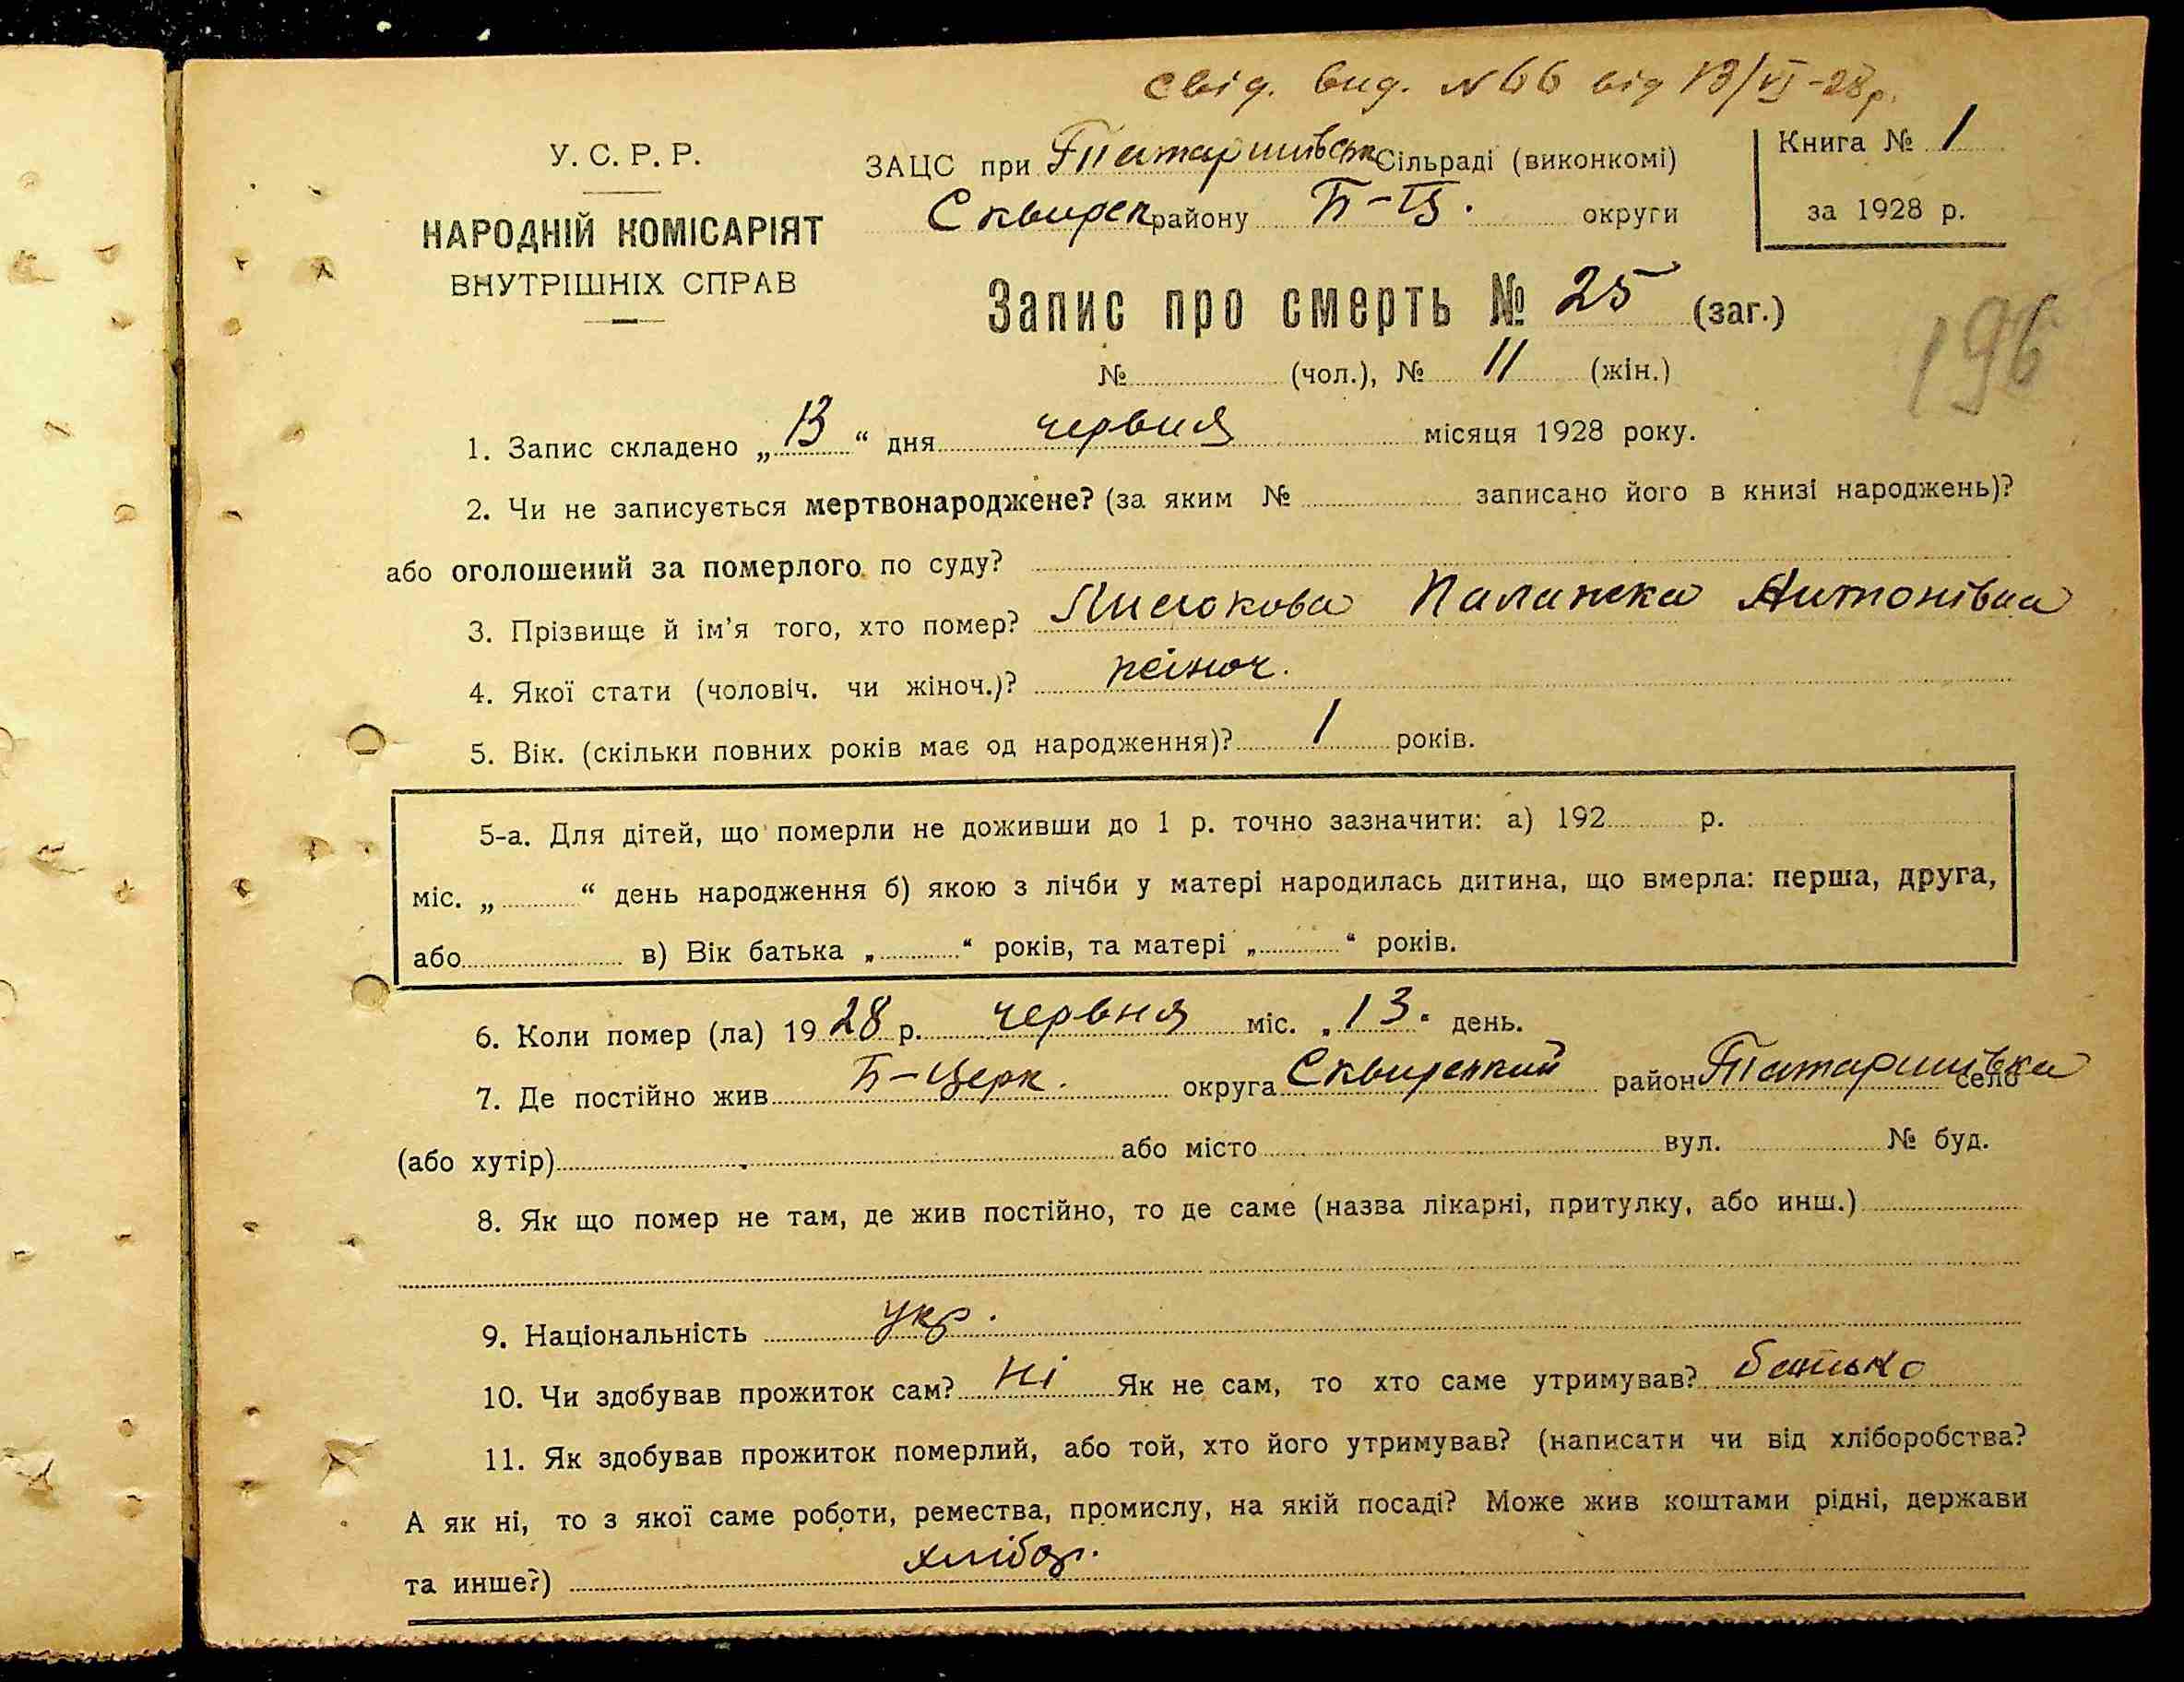 свід. вид. №66 від 13/VI-28р.
У. С. Р. Р.
НАРОДНІЙ КОМІСАРІЯТ
ВНУТРІШНІХ СПРАВ
ЗАЦС при Татаршивськ Сільраді (виконкомі)
Сквирськ району Б-Ц. округи
Книга № 1
за 1928 р.
Запис про смерть № 25 (заг.)
№ (чол.), № 11 (жін.)
196
1. Запис складено „13“ дня червня місяця 1928 року.
2. Чи не записується мертвонароджене? (за яким № записано його в книзі народжень)?
або оголошений за померлого по суду?
3. Прізвище й ім’я того, хто помер? Палажка Антонівна
4. Якої стати (чоловіч. чи жіноч.)? жіноч.
5. Вік. (скільки повних років має од народження)? 1 років.
5-а. Для дітей, що померли не доживши до 1 р. точно зазначити: а) 192 р.
міс. „ “ день народження б) якою з лічби у матері народилась дитина, що вмерла: перша, друга,
або в) Вік батька „ “ років, та матері „ “ років.
6. Коли помер (ла) 1928 р. червня міс. „13“ день.
7. Де постійно жив Б-Церк. округа Сквирський район Татаршивка село
(або хутір) або місто вул. № буд.
8. Як що помер не там, де жив постійно, то де саме (назва лікарні, притулку, або инш.)
9. Національність укр.
10. Чи здобував прожиток сам? Ні Як не сам, то хто саме утримував? батько
11. Як здобував прожиток померлий, або той, хто його утримував? (написати чи від хліборобства?
А як ні, то з якої саме роботи, ремества, промислу, на якій посаді? Може жив коштами рідні, держави
та инше?) хлібор.